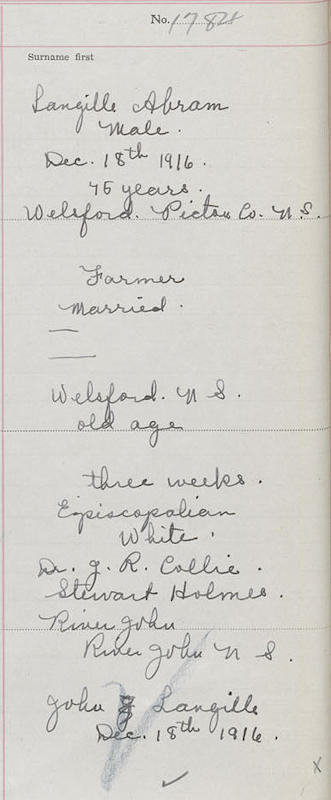 No. 1784
Surname first
Langille Abram
Male.
Dec. 18th 1916.
75 years.
Welsford. Pictou Co. N.S.
Farmer
Married.
—
—
Welsford. N S.
old age
three weeks.
Episcopalian
White.
Dr. J. R. Collie.
Stewart Holmes.
River John
River John N S.
John Langille
Dec. 18th 1916.
✓
x